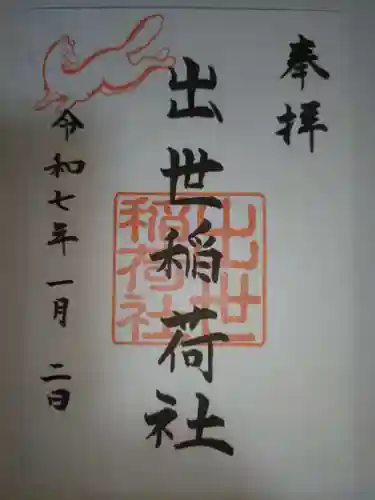 奉拝
出世稲荷社
出世
稲荷社
令和七年一月二日